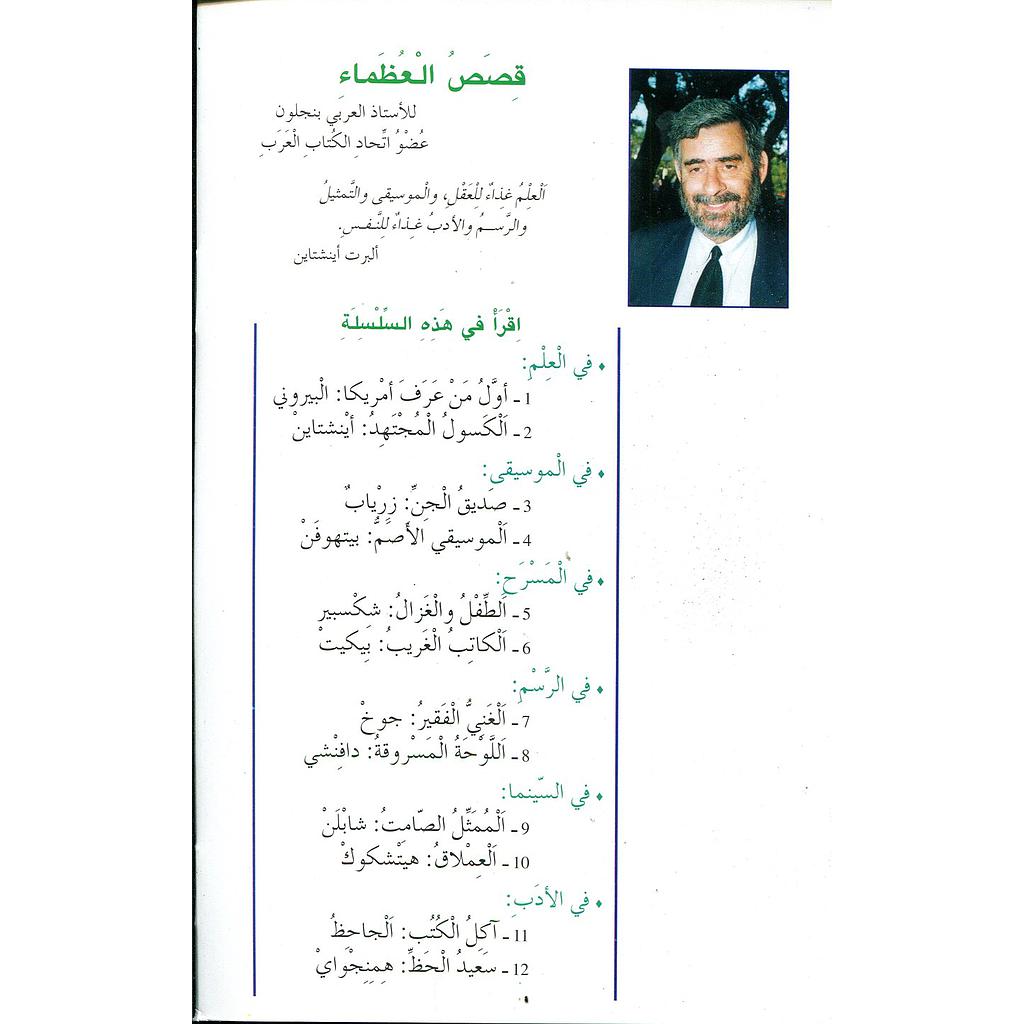 قِصَصُ الْعُظَماءِ
للأستاذ العربي بنجلون
عُضْوُ اتِّحادِ الكُتابِ الْعَرَبِ
اَلْعِلْمُ غِذاءٌ لِلْعَقْلِ، والْموسيقى والتَّمثيلُ
والرَّسمُ والأدبُ غِذاءٌ للِنَّفسِ.
ألبرت أينشتاين
اِقْرَأْ في هَذِهِ السِّلْسِلَةِ
♦ في الْعِلْمِ:
1 ـ أوَّلُ مَنْ عَرَفَ أمْريكا: الْبيروني
2 ـ اَلْكَسولُ الْمُجْتَهِدُ: أيْنشتاينْ
♦ في الْموسيقى:
3 ـ صَديقُ الْجِنِّ: زِرْيابٌ
4 ـ اَلْموسيقي الأَصَمُّ: بيتهوفَنْ
♦ في الْمَسْرَحِ:
5 ـ اَلطِّفْلُ والْغَزالُ: شكْسبير
6 ـ اَلْكاتِبُ الْغَريبُ: بيكيتْ
♦ في الرَّسْمِ:
7 ـ اَلْغَنِيُّ الْفَقيرُ: جوخْ
8 ـ اَللَّوْحَةُ الْمَسْروقةُ: دافِنْشي
♦ في السّينما:
9 ـ اَلْمُمَثِّلُ الصّامِتُ: شابْلَنْ
10 ـ اَلْعِمْلاقُ: هيتْشكوكْ
♦ في الأدَبِ:
11 ـ آكِلُ الْكُتُب: اَلْجاحِظُ
12 ـ سَعيدُ الْحَظِّ: هِمِنِجْوايْ